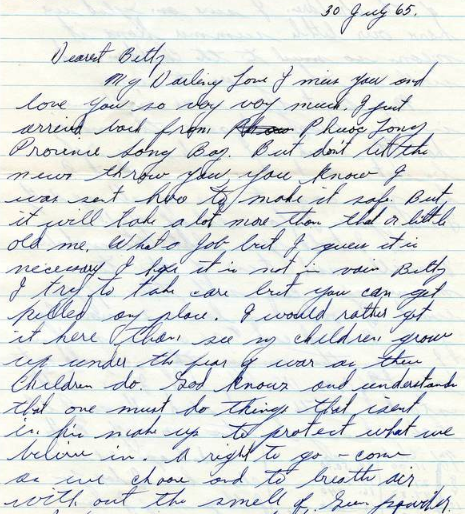 30 July 65.
Dearest Betty
My Darling Love I miss you and
love you so very very much. I just
arrived back from Phuoc Long
Provence Song Boy. But don't let the
news throw you you know I
was sent here to make it safe. But
it will take a lot more than that or little
old me. What a job but I guess it is
necessary I hope it is not in vain Betty
I try to take care but you can get
killed any place. I would rather get
it here than see my children grow
up under the fear of war as these
Children do. God knows and understands
that one must do things that isent
in his make up to protect what we
believe in. A right to go - come
as we choose and to breath air
with out the smell of Gun powder.